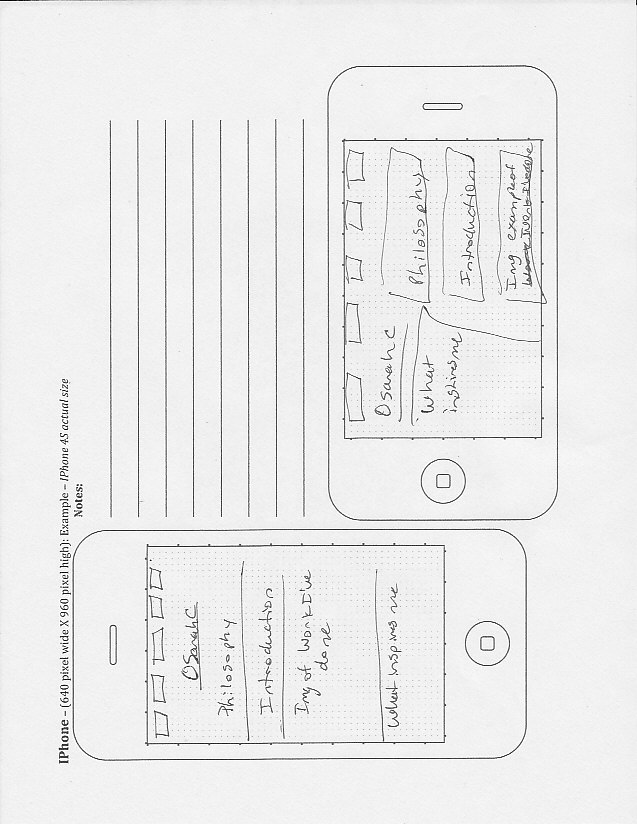 IPhone – (640 pixel wide X 960 pixel high): Example – IPhone 4S actual size
Notes:
OSarahC
Philosophy
Introduction
Img of Work I've
done
What inspires me
OSarahC
What
inspires me
Philosophy
Introduction
Img example of